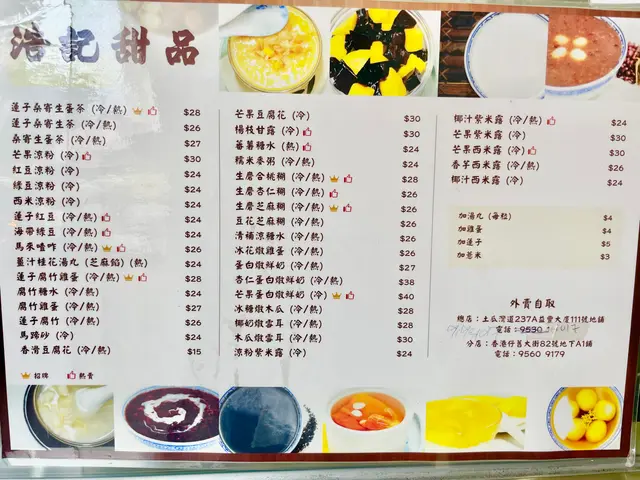 浩記甜品
蓮子桑寄生蛋茶 (冷/熱) $28
蓮子桑寄生茶 (冷/熱) $26
桑寄生蛋茶 (冷/熱) $27
芒果涼粉 (冷) $30
紅豆涼粉 (冷) $24
綠豆涼粉 (冷) $24
西米涼粉 (冷) $24
蓮子紅豆 (冷/熱) $24
海帶綠豆 (冷/熱) $24
馬來喳咋 (冷/熱) $26
薑汁桂花湯丸 (芝麻餡) (熱) $24
蓮子腐竹雞蛋 (冷/熱) $28
腐竹糖水 (冷/熱) $24
腐竹雞蛋 (冷/熱) $27
蓮子腐竹 (冷/熱) $26
馬蹄砂 (冷/熱) $24
香滑豆腐花 (冷/熱) $15
招牌 熱賣
芒果豆腐花 (冷) $30
楊枝甘露 (冷) $30
蕃薯糖水 (熱) $24
糯米麥粥 (冷/熱) $24
生磨合桃糊 (冷/熱) $28
生磨杏仁糊 (冷/熱) $26
生磨芝麻糊 (冷/熱) $26
豆花芝麻糊 (冷/熱) $26
清補涼糖水 (冷/熱) $26
冰花燉雞蛋 (冷/熱) $26
蛋白燉鮮奶 (冷/熱) $27
杏仁蛋白燉鮮奶 (冷/熱) $38
芒果蛋白燉鮮奶 (冷/熱) $40
冰糖燉木瓜 (冷/熱) $28
椰奶燉雪耳 (冷/熱) $28
木瓜燉雪耳 (冷/熱) $30
涼粉紫米露 (冷) $24
椰汁紫米露 (冷/熱) $24
芒果紫米露 (冷) $30
芒果西米露 (冷) $30
香芋西米露 (冷/熱) $26
椰汁西米露 (冷) $24
加湯丸 (每粒) $4
加雞蛋 $4
加蓮子 $5
加薏米 $3
外賣自取
總店：土瓜灣道237A益豐大廈111號地舖
電話：9530
分店：香港仔舊大街82號地下A1舖
電話：9560 9179